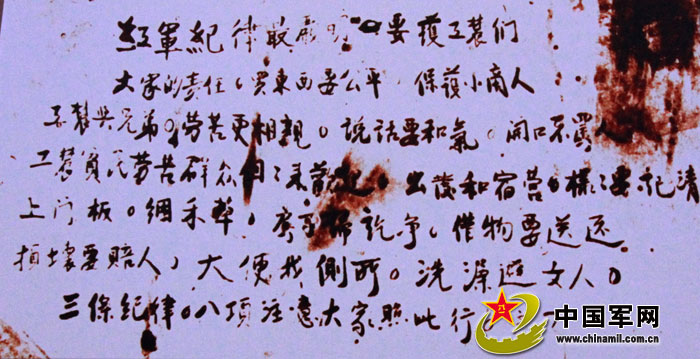 红軍紀律最嚴明 要護工農们
大家的責任。買東西要公平，保護小商人
工農与兄弟。劳苦更相親。說話要和氣。開口不罵人
工農貧民劳苦群众 歡 。出發和宿营。樣々要記清
上门板。綑禾草，房子掃訖净。借物要送还
損壞要賠人，大便找側所。洗澡避女人。
三條紀律。八項注意大家照此行。
中国军网
www.chinamil.com.cn